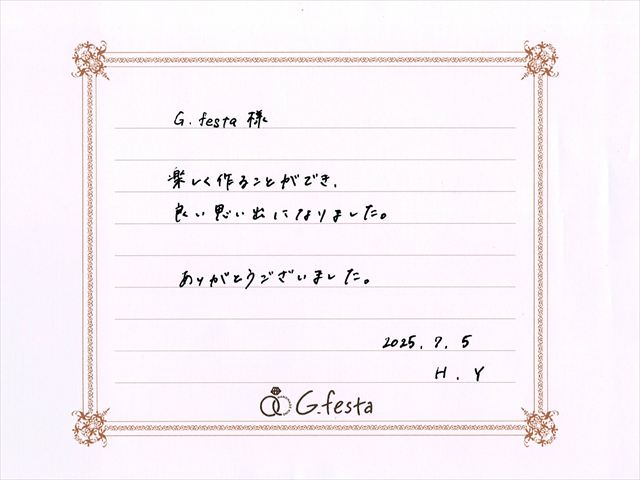 G. festa 様
楽しく作ることができ、
良い思い出になりました。
ありがとうございました。
2025. 7. 5
H. Y
G.festa